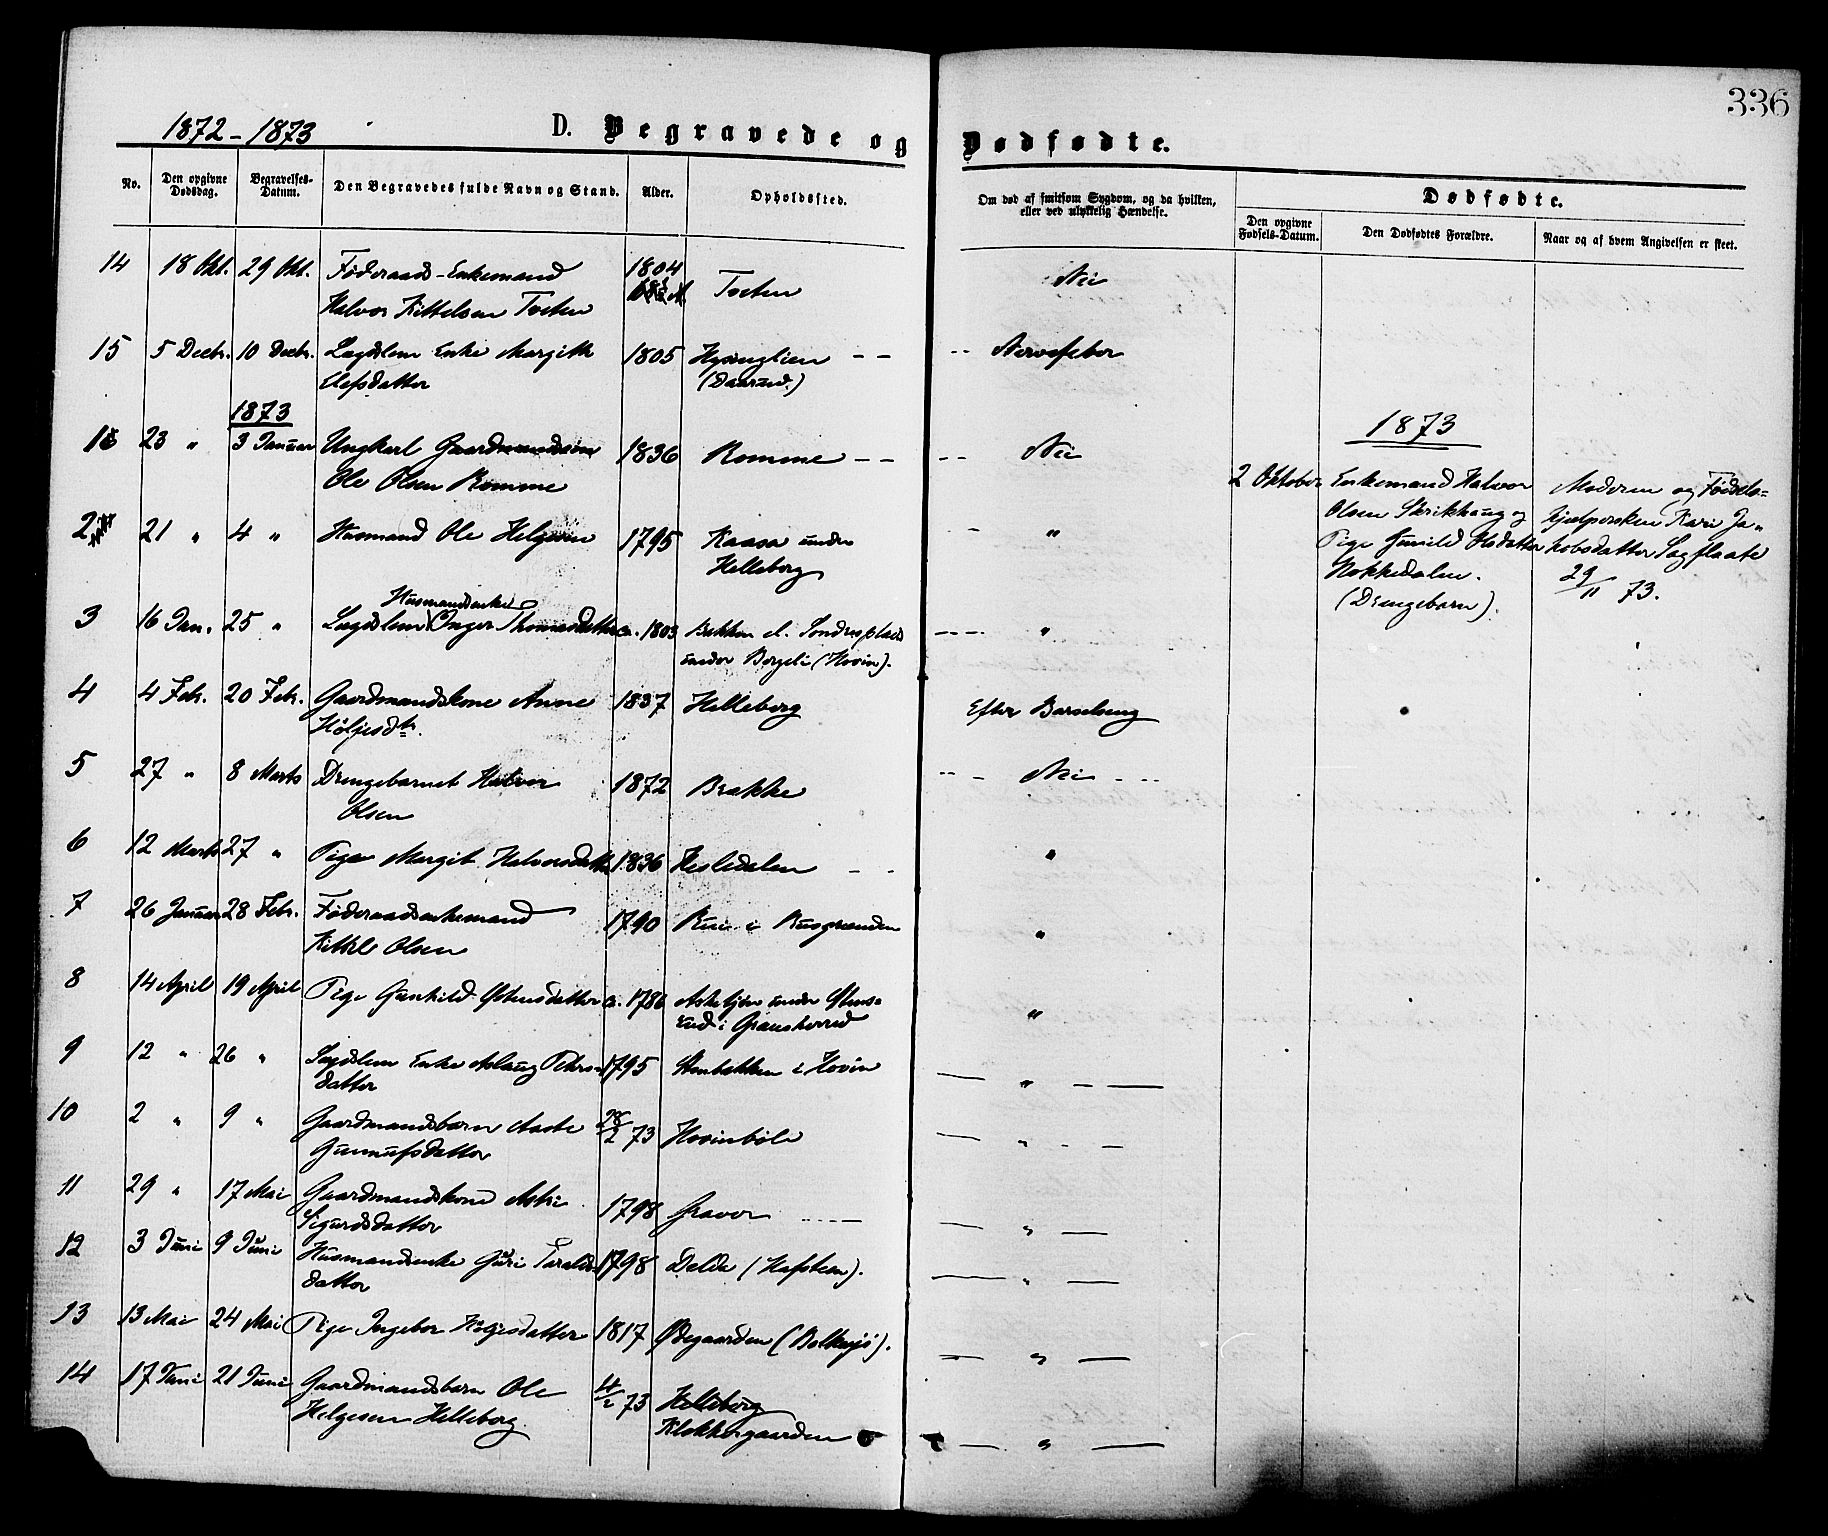 336
1872 - 1873
D. Begravede og Dødfødte.
No.
Den opgivne Dødsdag.
Begravelses-Datum.
Den Begravedes fulde Navn og Stand.
Alder.
Opholdssted.
Om død af smitsom Sygdom, og da hvilken, eller ved ulykkelig Hændelse.
Dødfødte.
Den opgivne Fødsels-Datum.
Den Dødfødtes Forældre.
Naar og af hvem Angivelsen er skeet.
14 18 Okt. 29 Okt. Føderaads-Enkemand 1804 Nei
Halvor Kittelsen Tveten Tveten
15 5 Decbr. 10 Decbr. Lægdslem Enke Margith 1805 Hvanglien - - -- Nervefeber
Olefsdatter (Daarud.)
1873
1 23 " 3 Januar Ungkarl Gaardmandssøn 1836 Romme - - -- Nei
Ole Olsen Romme
2 21 " 4 " Husmand Ole Helgesen 1795 Kaasa under - "
Helleborg
Husmandsenke
3 16 Jan. 25 " Lægdslem Inger Thomasdatter c. 1803 Bakken el. Sondresplads --- "
under Bergeli (Hovin).
4 4 Febr. 20 Febr. Gaardmandskone Anne 1837 Helleberg Efter Barselseng
Høljesdtr.
5 27 " 8 Marts Drengebarnet Halvor 1872 Brække -- - Nei - --
Olsen
6 12 Marts 27 " Pige Margit Halvorsdatter 1836 Hesledalen - - "
7 26 Januar 28 Febr. Føderaadsenkemand 1790 Rui i Busgrænden "
Kittil Olsen
8 14 April 19 April Pige Gunhild Østensdatter c. 1786 under "
rud i Gransherred
9 12 " 26 " Lægdslem Enke Aslaug Peters- 1795 Stenbekken i Hovin — " - —
datter
10 2 " 9 " Gaardmandsbarn Aaste 28/2 73 Hovinbøle — " - —
Gunnufsdatter
11 29 " 17 Mai Gaardmandskone Astri 1798 Graver ---- — — " —
Sigurdsdatter
12 3 Juni 9 Juni Husmandsenke Guri Taralds- 1798 Dalen (Hafsten). — " —
datter
13 13 Mai 24 Mai Pige Ingebor Høljesdatter 1817 Ødegaarden (Bolkesjø). — " —
14 17 Juni 21 Juni Gaardmandsbarn Ole 4/2 73 Helleberg
Helgesen Helleberg. Klokkergaarden — " —
1873
2 Oktober Enkemand Halvor
Olsen Skrikhaug og
Pige Gunild Olsdatter
Nokkedalen.
(Drengebarn).
Moderen og Fødsels-
hjælpersken Kari Ja-
kobsdatter Sagflaate
29/11 73.